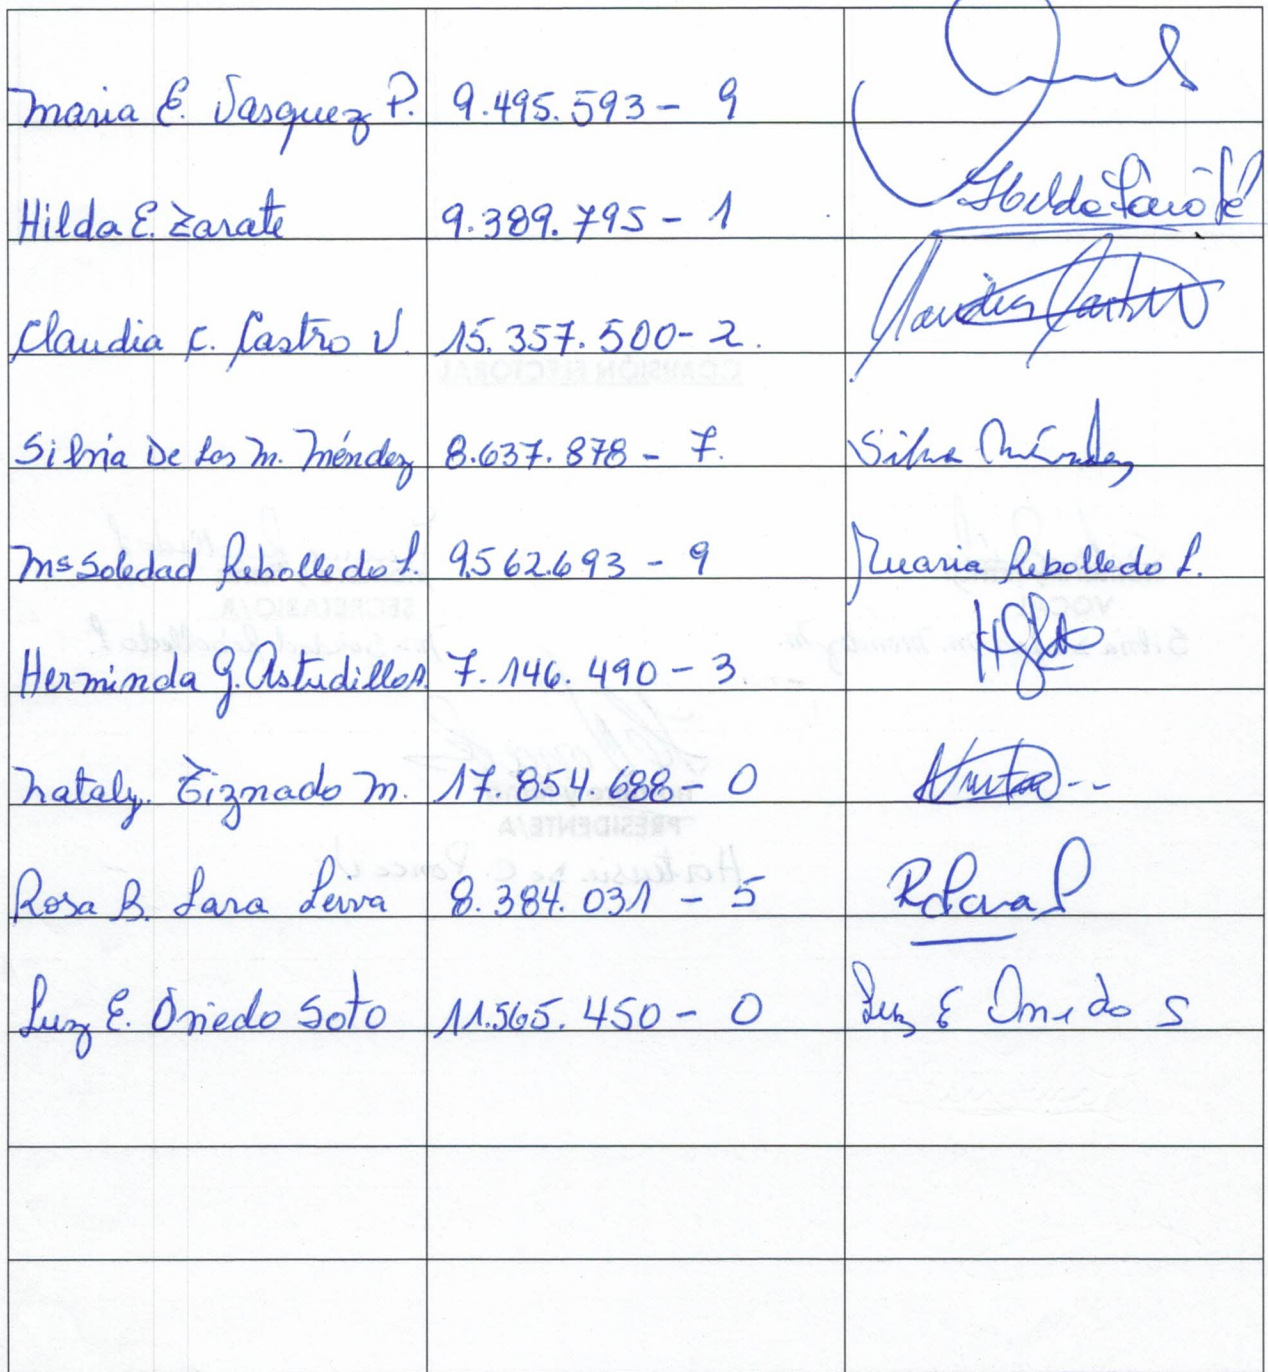 Maria E. Vasquez P. 9.495.593 - 9
Hilda E. Zarate 9.389.795 - 1
Claudia C. Castro V. 15.357.500 - 2.
Silvia De Los M. Méndez 8.637.878 - 7. Silvia Méndez
Ms Soledad Rebolledo L. 9.562.693 - 9 Maria Rebolledo L.
Herminda G. Astudillo A. 7.146.490 - 3
Nataly. Tiznado M. 17.854.688 - 0
Rosa B. Lara Leiva 8.384.031 - 5
Luz E. Oviedo Soto 11.565.450 - 0 Luz E Oviedo S